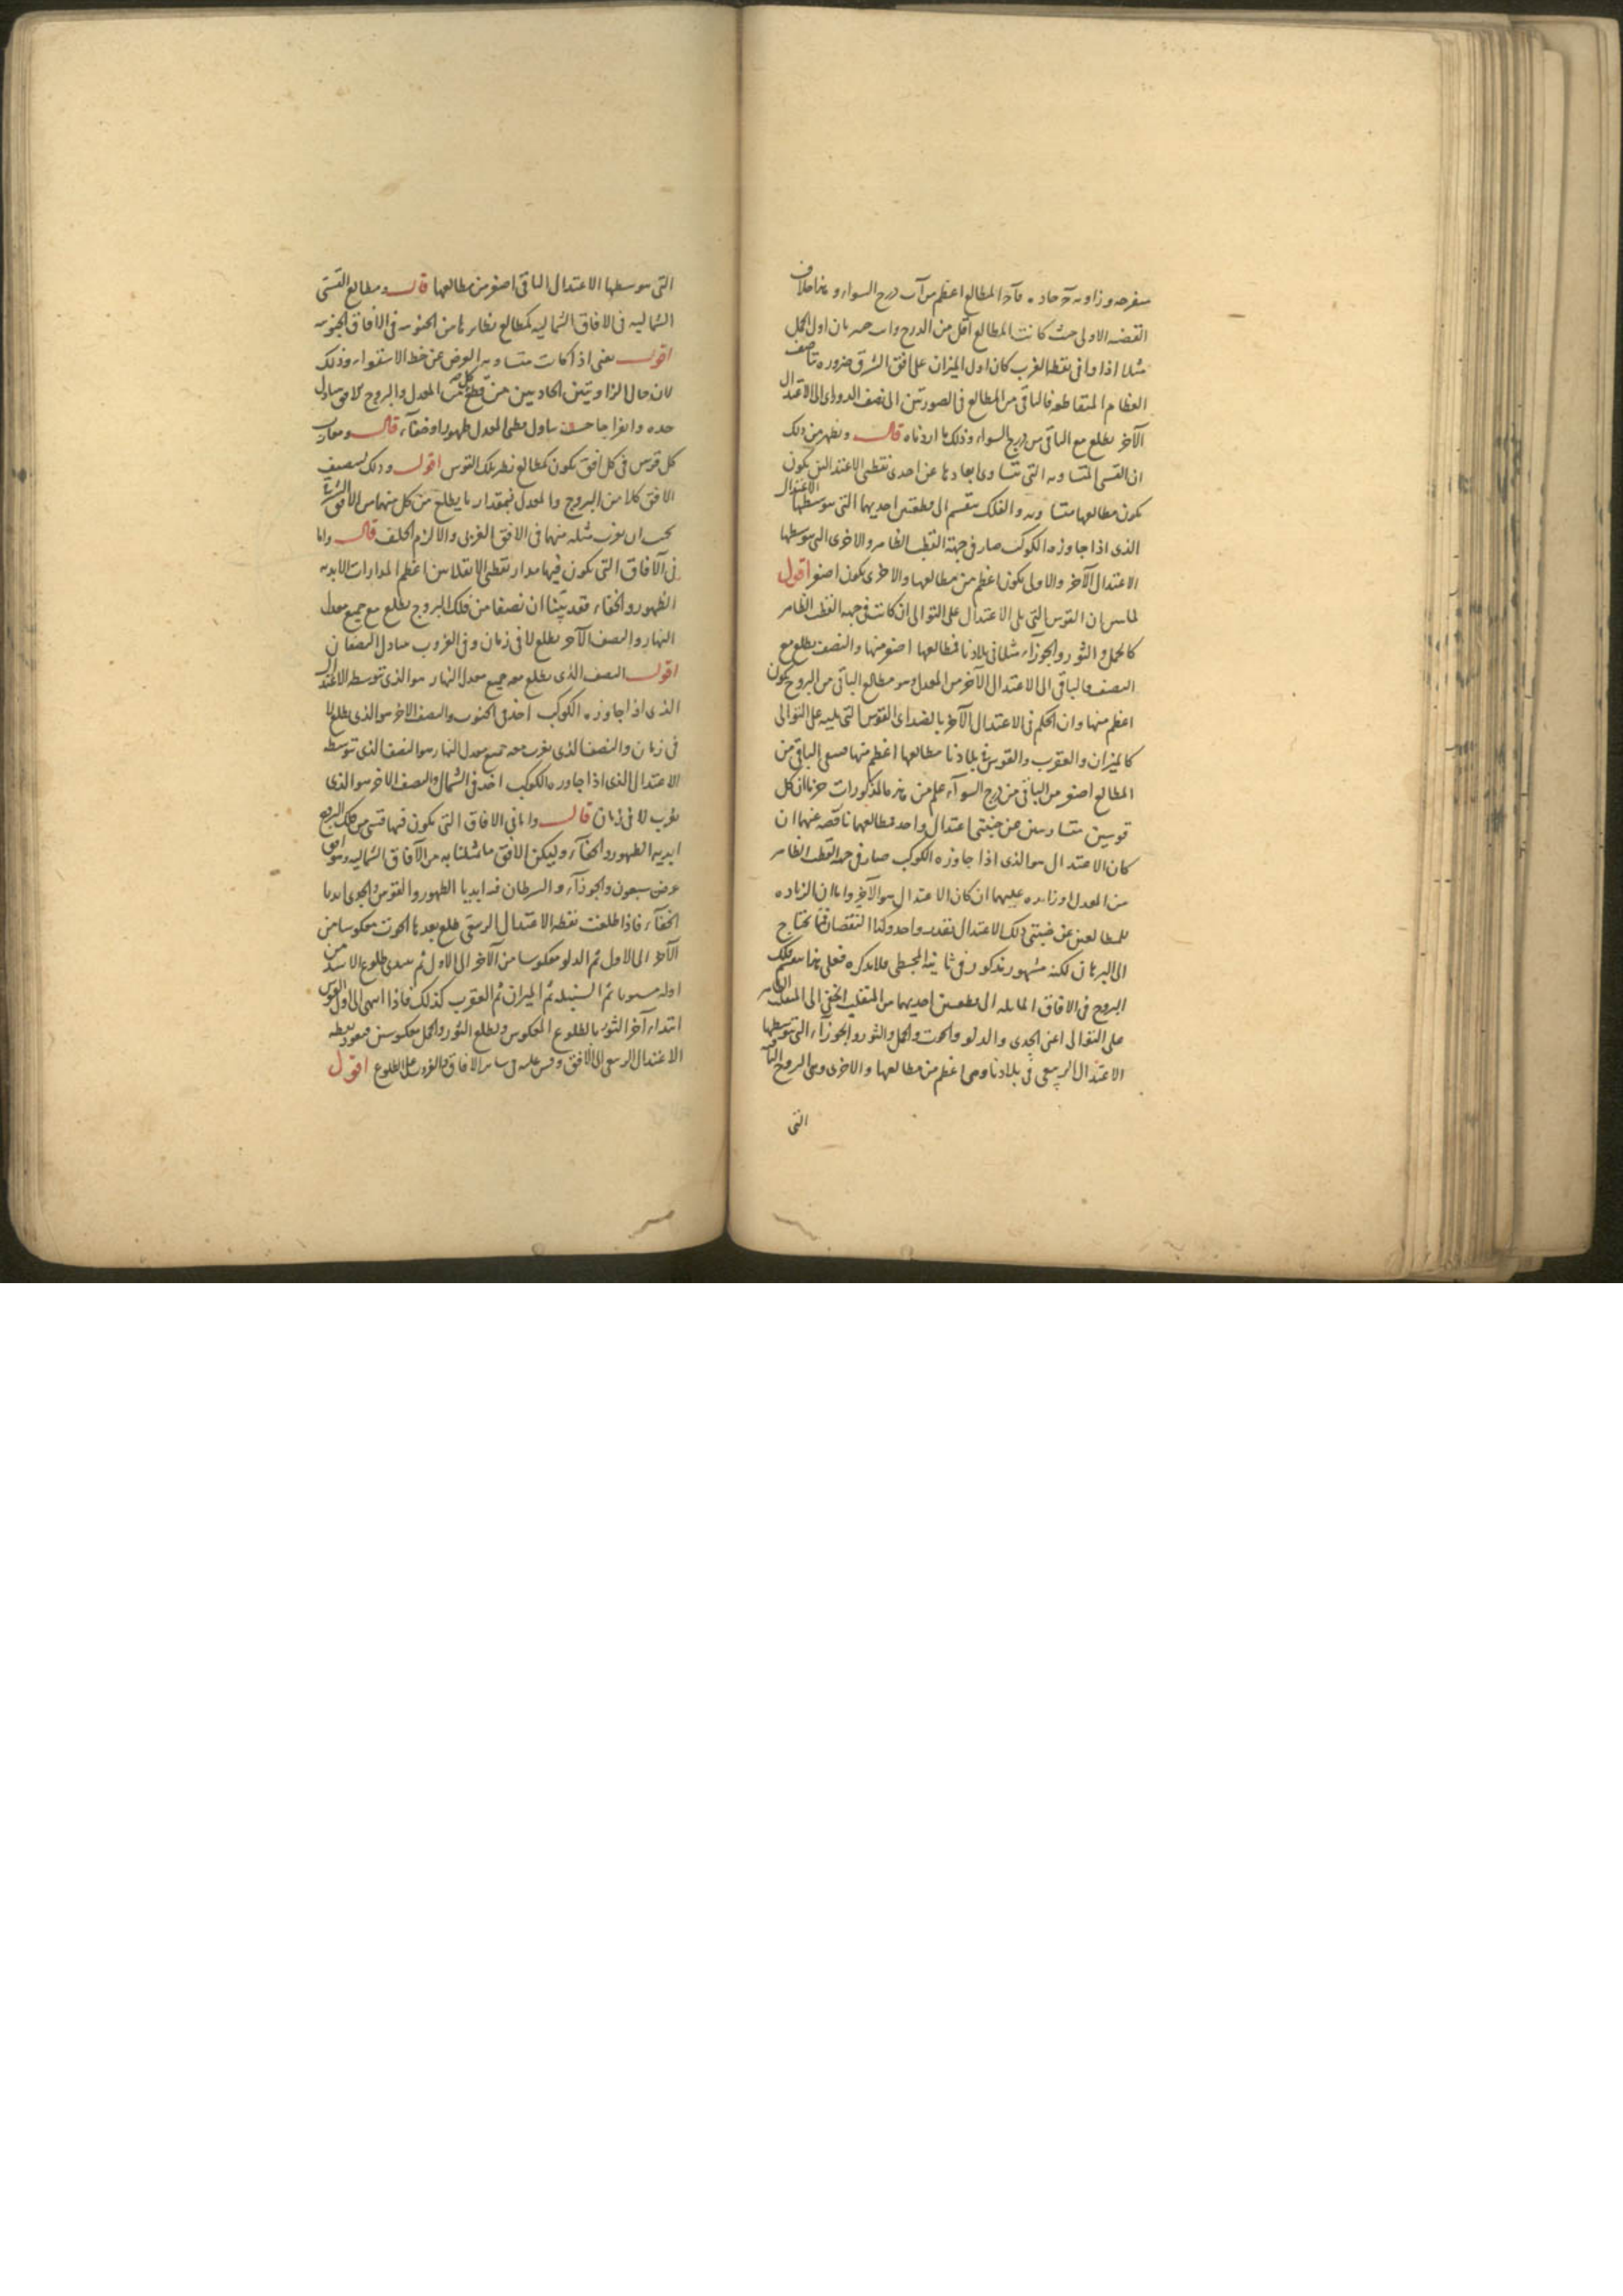 منفرجه وزاويه حادة المطالع اعظم من اب درج السواء وهذا خلاف
القضيه الاولى حيث كانت المطالع اقل من الدرج بان اول الحمل
مثلا اذا وافى نقطة الغرب كان اول الميزان على افق الشرق ضروره تناصف
العظام المتقاطعه فالباقى من المطالع فى الصورتين الى نصف الدور اى الى الاعتدال
الآخر يطلع مع الباقى من درج السواء وذلك ما اردناه قال ويظهر من ذلك
ان القسى المتساويه التى تتساوى ابعادها عن احدى نقطتى الاعتدالين يكون
يكون مطالعها متساويه والفلك ينقسم الى قطعتين احديهما التى يتوسطها الاعتدال
الذى اذا جاوزه الكوكب صار فى جهة القطب الظاهر والاخرى التى يتوسطها
الاعتدال الآخر والاولى يكون اعظم من مطالعها والاخرى يكون اصغر اقول
لما بين ان القوس التى يلى الاعتدال على التوالى ان كانت فى جهه القطب الظاهر
كالحمل والثور والجوزاء مثلا فى بلادنا فمطالعها اصغر منها والنصف يطلع مع
النصف فالباقى الى الاعتدال الآخر من المعدل وهو مطالع الباقى من البروج يكون
اعظم منها وان الحكم فى الاعتدال الآخر بالضد اى القوس التى يليه على التوالى
كالميزان والعقرب والقوس فى بلادنا مطالعها اعظم منها فيبقى الباقى من
المطالع اصغر من الباقى من درج السواء علم من هذه المذكورات ان كل
قوسين متساويتين عن جنبتى اعتدال واحد فمطالعهما ناقصه عنهما ان
كان الاعتدال هو الذى اذا جاوزه الكوكب صار فى جهه القطب الظاهر
من المعدل او زايده عليهما ان كان الاعتدال هو الآخر واما ان الزياده
للمطالعين عن جنبتى ذلك الاعتدال بقدر واحد وكذا النقصان فمما يحتاج
الى البرهان لكنه مشهور مذكور فى ثانيه المجسطى فلا نذكره فعلى هذا ينقسم فلك
البروج فى الافاق المايله الى قطعتين احديهما من المنقلب الخفى الى المنقلب الظاهر
على التوالى اعنى الجدى والدلو والحوت والحمل والثور والجوزاء التى يتوسطها
الاعتدال الربيعى فى بلادنا وهى اعظم من مطالعها والاخرى وهى البروج الباقيه
التى
التى يتوسطها الاعتدال الباقى اصغر من مطالعها قال ومطالع القسى
الشماليه فى الافاق الشماليه كمطالع نظايرها من الجنوبيه فى الافاق الجنوبيه
اقول يعنى اذا كانت متساويه العرض عن خط الاستواء وذلك
لان حال الزاويتين الحادثتين من قطع كل من المعدل والبروج للافق
حده وانفراجا بتبادل قطبى المعدل ظهورا وخفاء قال ومغارب
كل قوس فى كل افق يكون كمطالع نظير تلك القوس اقول وذلك لتنصيف
الافق كلا من البروج والمعدل فبمقدار ما يطلع من كل منهما من الافق الشرقى
يجب ان يغرب مثله منهما فى الافق الغربى والا لزم الخلف قال واما
فى الآفاق التى يكون فيها مدار نقطتى الانقلابين اعظم المدارات الابديه
الظهور والخفاء فقد بينا ان نصفا من فلك البروج يطلع مع جميع معدل
النهار والنصف الآخر يطلع لا فى زمان وفى الغروب يتبادل النصفان
اقول النصف الذى يطلع معه جميع معدل النهار هو الذى يتوسطه الاعتدال
الذى اذا جاوزه الكوكب اخذ فى الجنوب والنصف الاخر هو الذى يطلع لا
فى زمان والنصف الذى يغرب معه جميع معدل النهار هو النصف الذى توسطه
الاعتدال الذى اذا جاوزه الكوكب اخذ فى الشمال والنصف الاخر هو الذى
يغرب لا فى زمان قال واما فى الافاق التى يكون فيها قسى من فلك البروج
ابديه الظهور والخفاء وليكن الافق ما مثلنا به من الآفاق الشماليه وهو افق
عرض سبعون والجوزاء والسرطان فيه ابديا الظهور والقوس والجدى ابديا
الخفاء فاذا طلعت نقطه الاعتدال الربيعى طلع بعدها الحوت معكوسا من
الآخر الى الاول ثم الدلو معكوسا من الآخر الى الاول ثم يبتدى طلوع الاسد من
اوله مستويا ثم السنبله ثم الميزان ثم العقرب كذلك فاذا انتهى الى اول القوس
ابتداء آخر الثور بالطلوع المعكوس ويطلع الثور والحمل معكوسين فيعود نقطه
الاعتدال الربيعى الى الافق وقس عليه فى ساير الافاق والغروب على الطلوع اقول